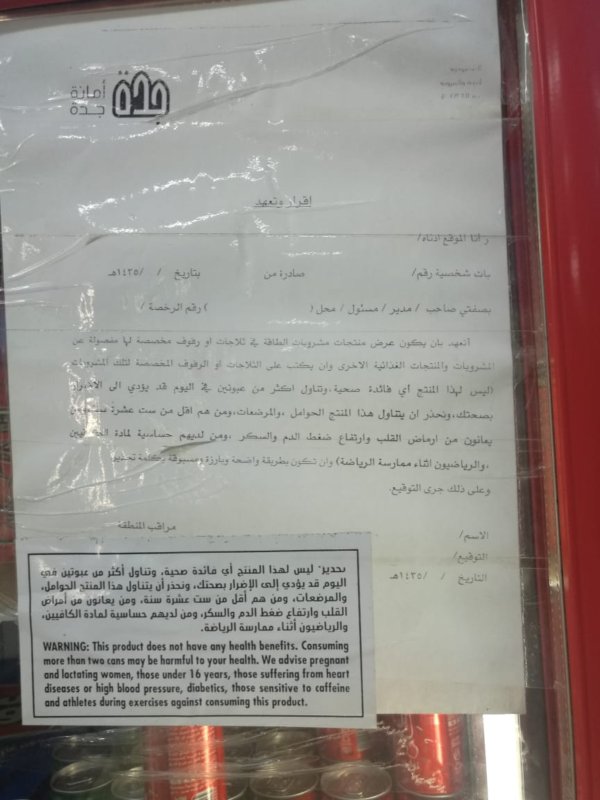 أمانة
جدة
جدة
إقرار وتعهد
أنا الموقع أدناه/
بات شخصية رقم/ صادرة من بتاريخ / /١٤٣٥هـ
بصفتي صاحب / مدير / مسئول / محل ( ) رقم الرخصة /
أتعهد بان يكون عرض منتجات مشروبات الطاقة في ثلاجات او رفوف مخصصة لها مفصولة عن
المشروبات والمنتجات الغذائية الاخرى وان يكتب على الثلاجات او الرفوف المخصصة لتلك المشروبات
(ليس لهذا المنتج أي فائدة صحية،وتناول اكثر من عبوتين في اليوم قد يؤدي الى الاضرار
بصحتك،ونحذر ان يتناول هذا المنتج الحوامل ،والمرضعات،ومن هم اقل من ست عشرة
يعانون من ارماض القلب وارتفاع ضغط الدم والسكر ،ومن لديهم حساسية لمادة
،والرياضيون اثناء ممارسة الرياضة) وان تكون بطريقة واضحة وبارزة ومسبوقة بكلمة تحذير
وعلى ذلك جرى التوقيع.
مراقب المنطقة
الاسم/
التوقيع/
التاريخ / /١٤٣٥هـ
"تحذير" ليس لهذا المنتج أي فائدة صحية، وتناول أكثر من عبوتين في
اليوم قد يؤدي إلى الإضرار بصحتك، ونحذر أن يتناول هذا المنتج الحوامل،
والمرضعات، ومن هم أقل من ست عشرة سنة، ومن يعانون من أمراض
القلب وارتفاع ضغط الدم والسكر، ومن لديهم حساسية لمادة الكافيين،
والرياضيون أثناء ممارسة الرياضة.
WARNING: This product does not have any health benefits. Consuming
more than two cans may be harmful to your health. We advise pregnant
and lactating women, those under 16 years, those suffering from heart
diseases or high blood pressure, diabetics, those sensitive to caffeine
and athletes during exercises against consuming this product.